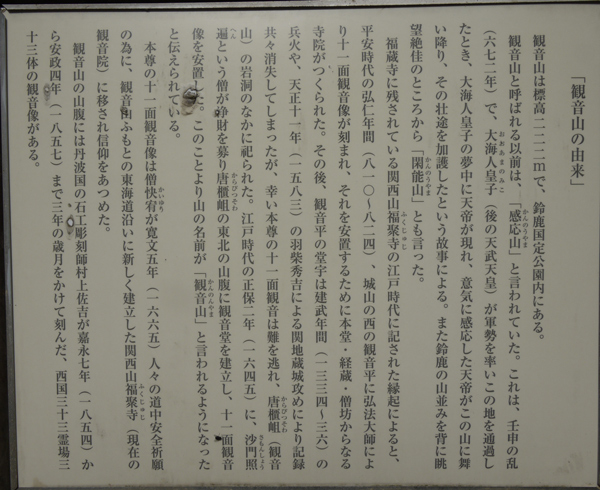 「観音山の由来」
観音山は標高二二二mで、鈴鹿国定公園内にある。
観音山と呼ばれる以前は、「感応山」と言われていた。これは、壬申の乱
（六七二年）で、大海人皇子（後の天武天皇）が軍勢を率いこの地を通過し
たとき、大海人皇子の夢中に天帝が現れ、意気に感応した天帝がこの山に舞
い降り、その壮途を加護したという故事による。また鈴鹿の山並みを背に眺
望絶佳のところから「閑能山」とも言った。
福蔵寺に残されている関西山福聚寺の江戸時代に記された縁起によると、
平安時代の弘仁年間（八一〇〜八二四）、城山の西の観音平に弘法大師によ
り十一面観音像が刻まれ、それを安置するために本堂・経蔵・僧坊からなる
寺院がつくられた。その後、観音平の堂宇は建武年間（一三三四〜三六）の
兵火や、天正十一年（一五八三）の羽柴秀吉による関地蔵城攻めにより記録
共々消失してしまったが、幸い本尊の十一面観音は難を逃れ、唐櫃岨（観音
山）の岩洞のなかに祀られた。江戸時代の正保二年（一六四五）に、沙門照
遍という僧が浄財を募り唐櫃岨の東北の山腹に観音堂を建立し、十一面観音
像を安置した。このことより山の名前が「観音山」と言われるようになった
と伝えられている。
本尊の十一面観音像は僧快宥が寛文五年（一六六五）人々の道中安全祈願
の為に、観音山ふもとの東海道沿いに新しく建立した関西山福聚寺（現在の
観音院）に移され信仰をあつめた。
観音山の山腹には丹波国の石工彫刻師村上佐吉が嘉永七年（一八五四）か
ら安政四年（一八五七）まで三年の歳月をかけて刻んだ、西国三十三霊場三
十三体の観音像がある。